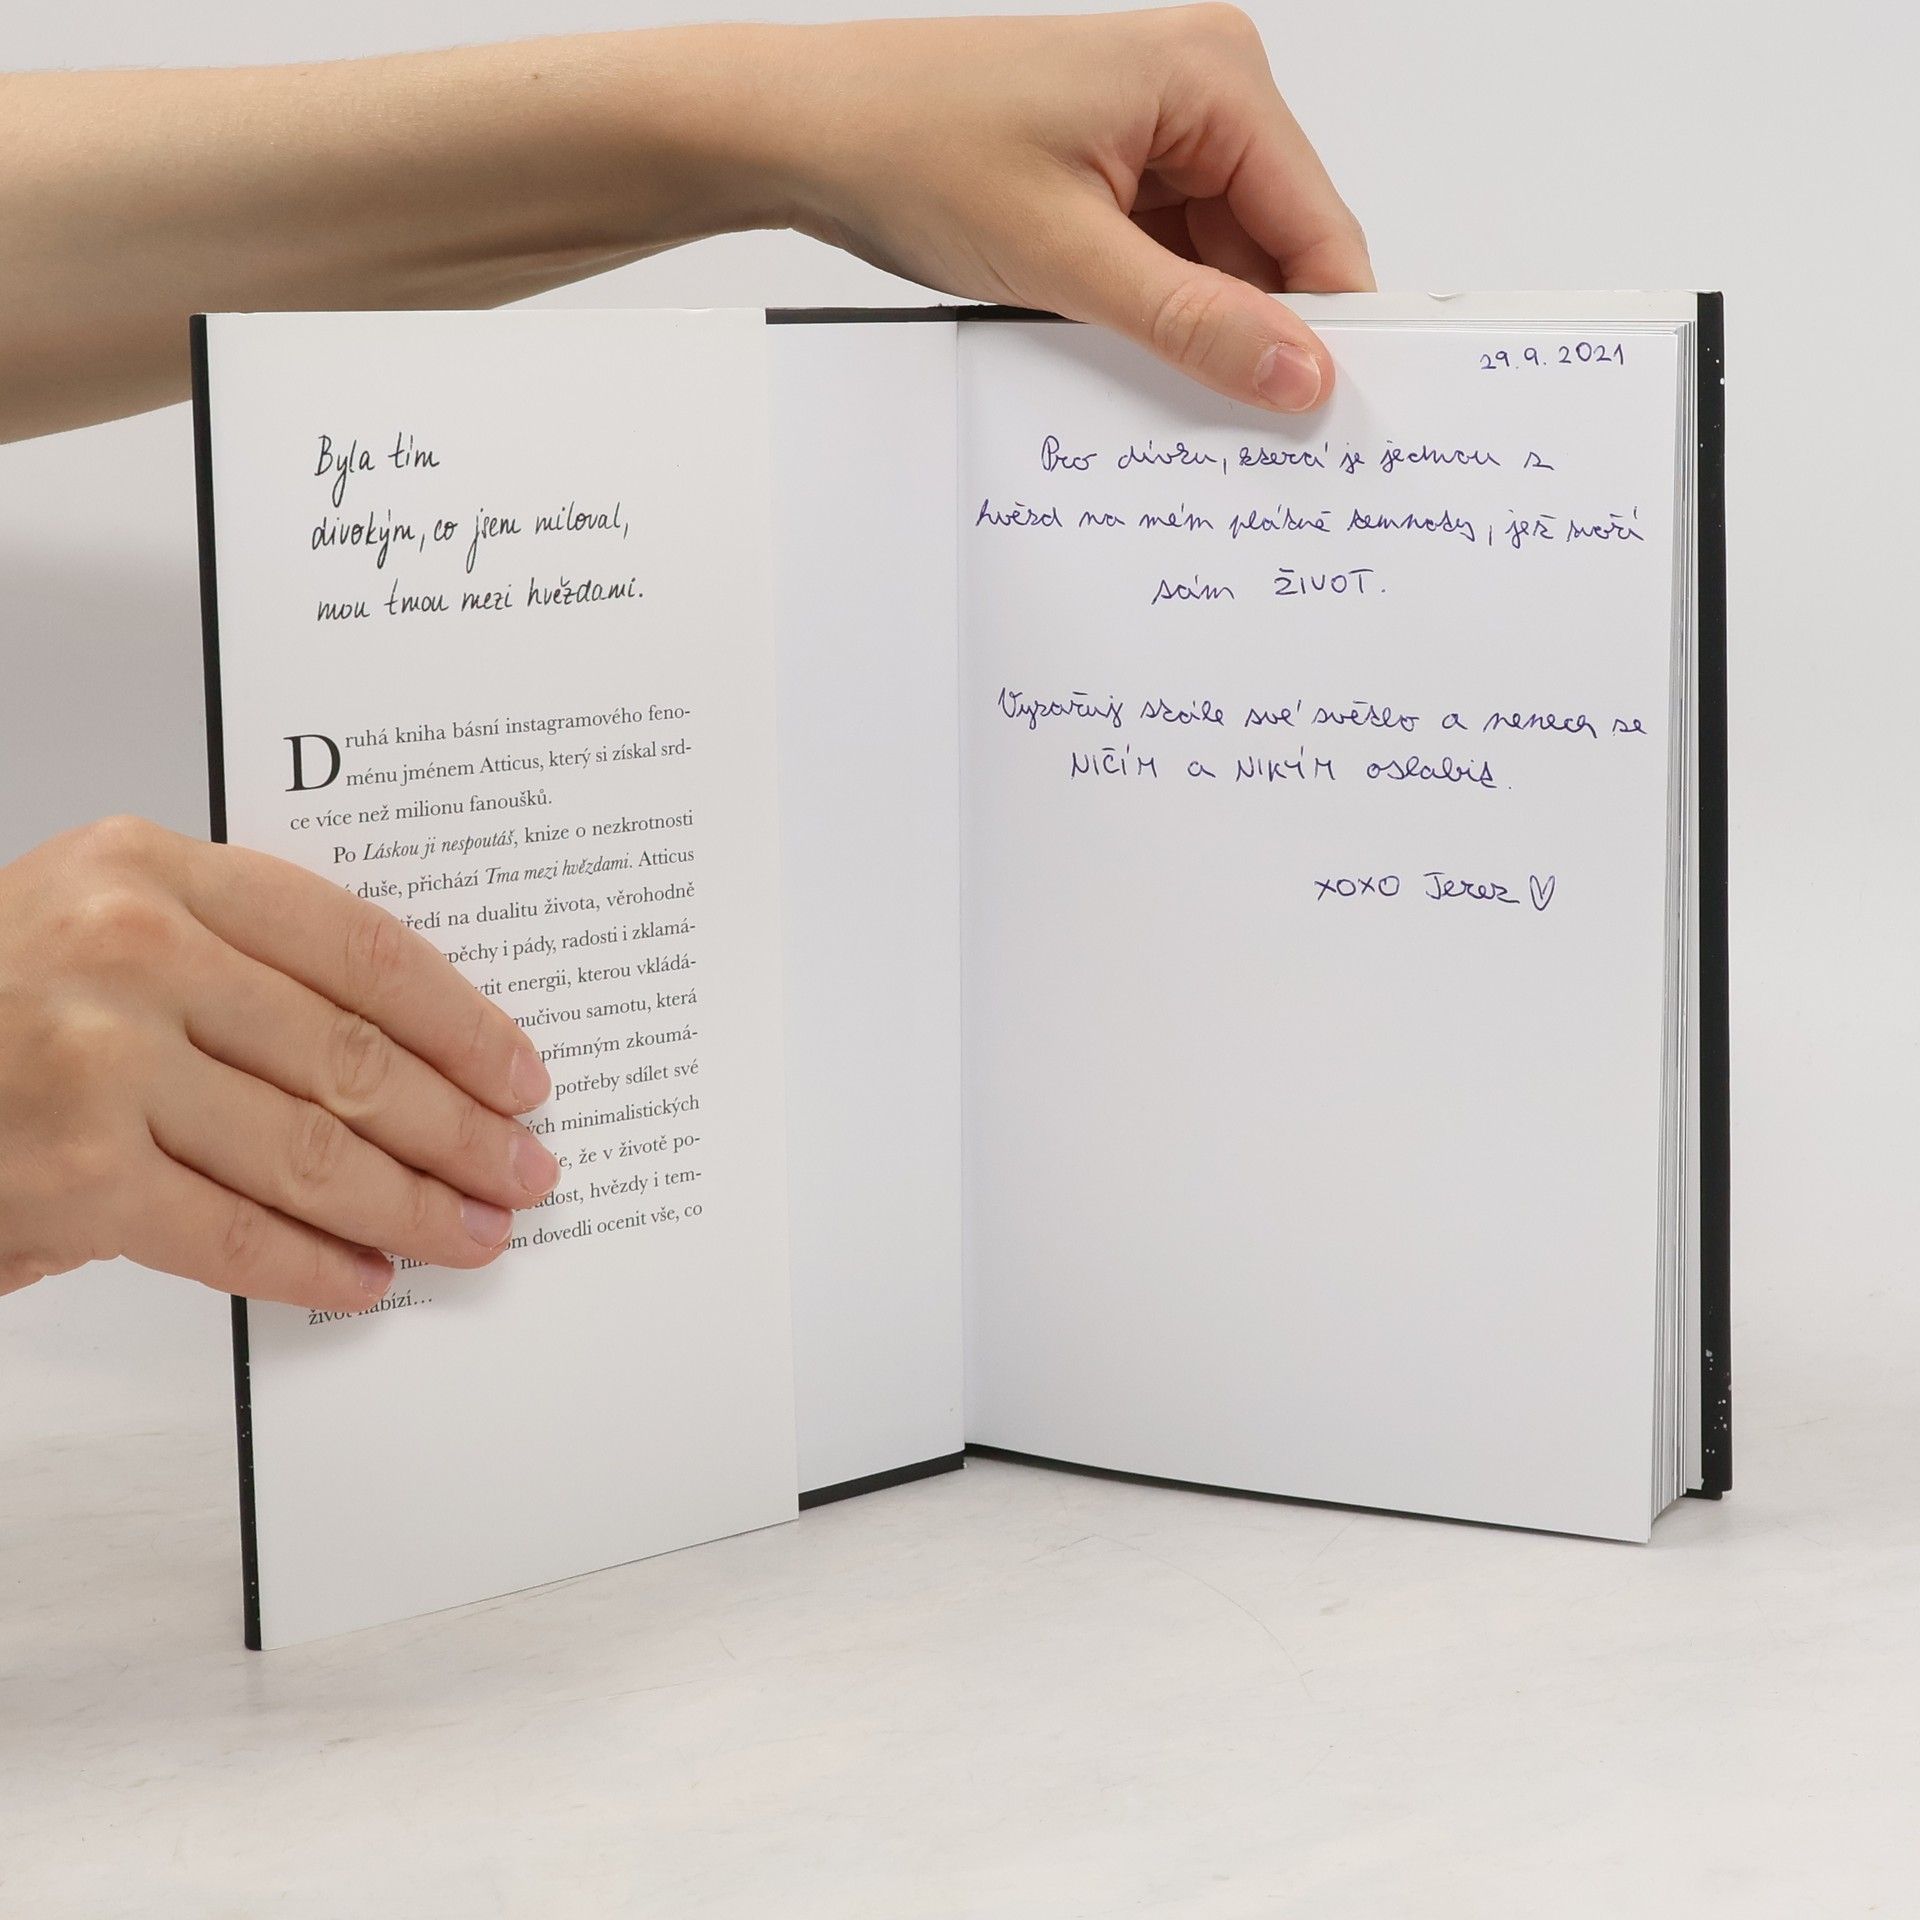 Byla tím
divokým, co jsem miloval,
mou tmou mezi hvězdami.
Druhá kniha básní instagramového feno-
ménu jménem Atticus, který si získal srd-
ce více než milionu fanoušků.
Po Láskou ji nespoutáš, knize o nezkrotnosti
duše, přichází Tma mezi hvězdami. Atticus
na dualitu života, věrohodně
i pády, radosti i zklamá-
energii, kterou vkládá-
samotu, která
zkoumá-
potřeby sdílet své
minimalistických
že v životě po-
hvězdy i tem-
dovedli ocenit vše, co
život nabízí...
29.9.2021
Pro dívku, která je jednou z
hvězd na mém plátně temnoty, jež tvoří
sám ŽIVOT.
Vyzařuj stále své světlo a nenech se
NIČÍM a NIKÝM oslabit.
xoxo Terez ♡